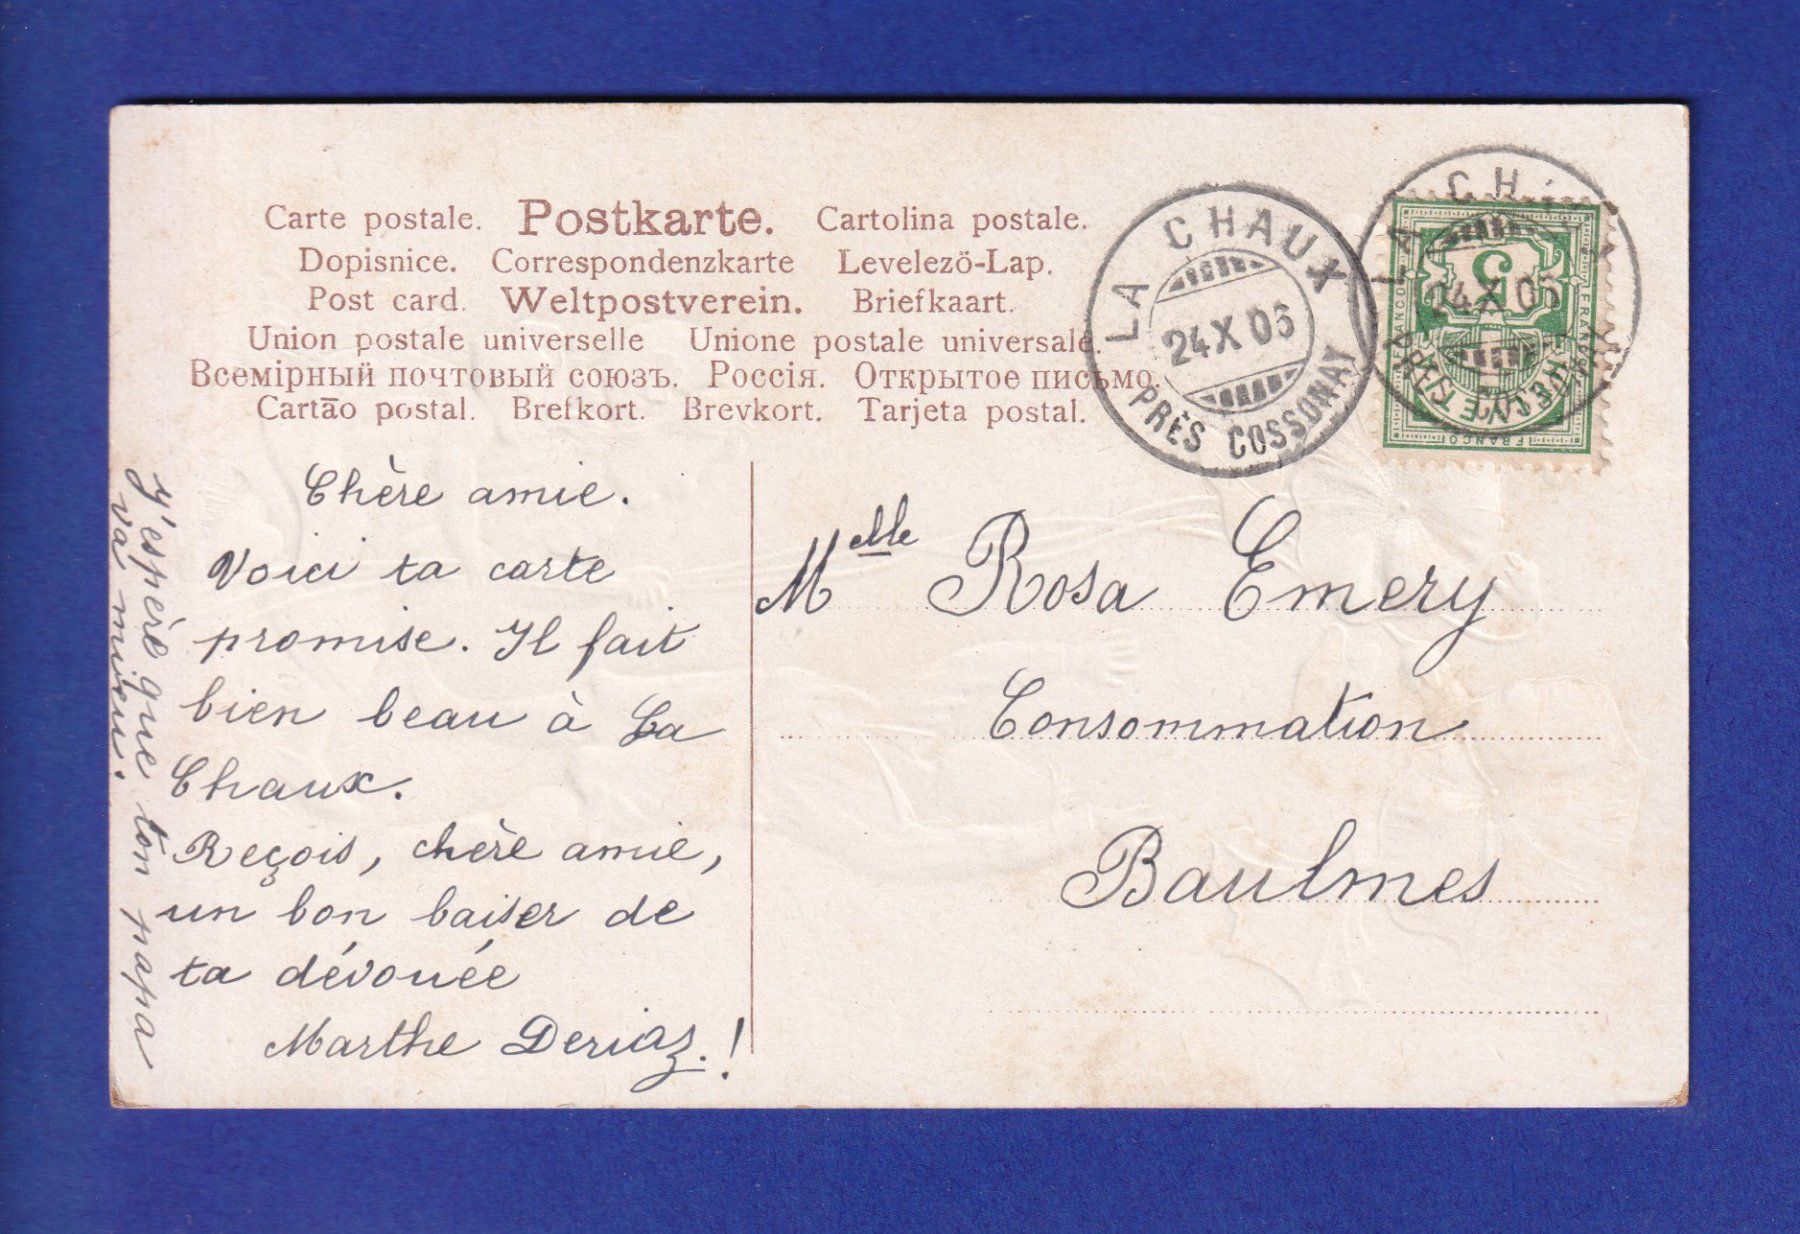 Carte postale. Postkarte. Cartolina postale.
Dopisnice. Correspondenzkarte Levelezö-Lap.
Post card. Weltpostverein. Briefkaart.
Union postale universelle Unione postale universale.
Всемірный почтовый союзъ. Россія. Открытое письмо.
Cartão postal. Brefkort. Brevkort. Tarjeta postal.
LA CHAUX
24 X 06
PRÈS COSSONAY
LA CH
24 X 06
PRÈS
5
FRANCO
HELVETIA
FRANCO
Chère amie.
Voici ta carte
promise. Il fait
bien beau à La
Chaux.
Reçois, chère amie,
un bon baiser de
ta dévouée
Marthe Deriaz.!
J'espère que ton papa
va mieu.
Melle Rosa Emery
Consommation
Baulmes